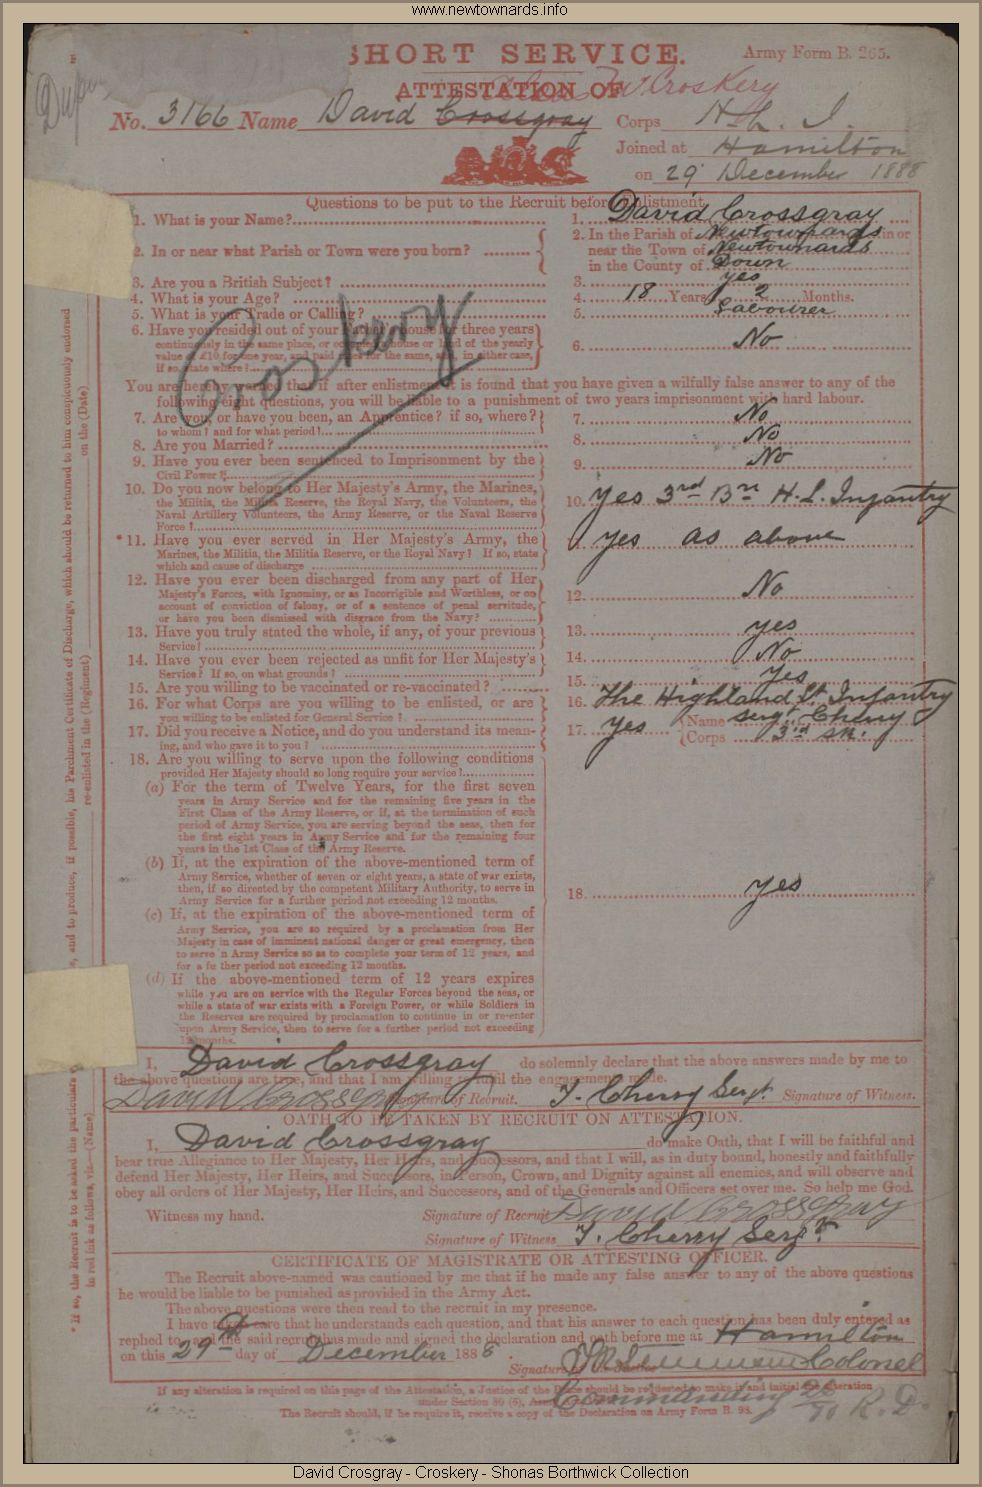 www.newtownards.info
SHORT SERVICE.
Army Form B. 265.
ATTESTATION OF
McCroskery
No. 3166 Name David Crossgray Corps H. L. I.
Joined at Hamilton
on 29 December 1888
Questions to be put to the Recruit before enlistment.
1. What is your Name? 1. David Crossgray
2. In or near what Parish or Town were you born? 2. In the Parish of Newtownards in or
near the Town of Newtownards
in the County of Down
3. Are you a British Subject? 3. yes
4. What is your Age? 4. 18 Years 2 Months.
5. What is your Trade or Calling? 5. Labourer
6. Have you resided out of your Father's house for three years
continuously in the same place, or occupied a house or land of the yearly
value of £10 for one year, and paid rates for the same, and, in either case,
if so, state where? 6. No
Croskery
You are hereby warned that if after enlistment it is found that you have given a wilfully false answer to any of the
following eight questions, you will be liable to a punishment of two years imprisonment with hard labour.
7. Are you, or have you been, an Apprentice? if so, where?
to whom? and for what period? 7. No
8. Are you Married? 8. No
9. Have you ever been sentenced to Imprisonment by the
Civil Power? 9. No
10. Do you now belong to Her Majesty's Army, the Marines,
the Militia, the Militia Reserve, the Royal Navy, the Volunteers, the
Naval Artillery Volunteers, the Army Reserve, or the Naval Reserve
Force? 10. Yes 3rd Bn H. L. Infantry
* 11. Have you ever served in Her Majesty's Army, the
Marines, the Militia, the Militia Reserve, or the Royal Navy? If so, state
which and cause of discharge yes as above
12. Have you ever been discharged from any part of Her
Majesty's Forces, with Ignominy, or as Incorrigible and Worthless, or on
account of conviction of felony, or of a sentence of penal servitude,
or have you been dismissed with disgrace from the Navy? 12. No
13. Have you truly stated the whole, if any, of your previous
Service? 13. yes
14. Have you ever been rejected as unfit for Her Majesty's
Service? If so, on what grounds? 14. No
15. Are you willing to be vaccinated or re-vaccinated? 15. Yes
16. For what Corps are you willing to be enlisted, or are
you willing to be enlisted for General Service? 16. The Highland Lt Infantry
17. Did you receive a Notice, and do you understand its mean-
ing, and who gave it to you? 17. yes Name Sergt Cherry
Corps 3rd
18. Are you willing to serve upon the following conditions
provided Her Majesty should so long require your service?
(a) For the term of Twelve Years, for the first seven
years in Army Service and for the remaining five years in the
First Class of the Army Reserve, or if, at the termination of such
period of Army Service, you are serving beyond the seas, then for
the first eight years in Army Service and for the remaining four
years in the 1st Class of the Army Reserve.
(b) If, at the expiration of the above-mentioned term of
Army Service, whether of seven or eight years, a state of war exists,
then, if so directed by the competent Military Authority, to serve in
Army Service for a further period not exceeding 12 months.
18. yes
(c) If, at the expiration of the above-mentioned term of
Army Service, you are so required by a proclamation from Her
Majesty in case of imminent national danger or great emergency, then
to serve in Army Service so as to complete your term of 12 years, and
for a further period not exceeding 12 months.
(d) If the above-mentioned term of 12 years expires
while you are on service with the Regular Forces beyond the seas, or
while a state of war exists with a Foreign Power, or while Soldiers in
the Reserves are required by proclamation to continue in or re-enter
upon Army Service, then to serve for a further period not exceeding
12 months.
I, David Crossgray do solemnly declare that the above answers made by me to
the above questions are true, and that I am willing to fulfil the engagements made.
David Crossgray Signature of Recruit. T. Cherry Sergt. Signature of Witness.
OATH TO BE TAKEN BY RECRUIT ON ATTESTATION.
I, David Crossgray do make Oath, that I will be faithful and
bear true Allegiance to Her Majesty, Her Heirs, and Successors, and that I will, as in duty bound, honestly and faithfully
defend Her Majesty, Her Heirs, and Successors, in Person, Crown, and Dignity against all enemies, and will observe and
obey all orders of Her Majesty, Her Heirs, and Successors, and of the Generals and Officers set over me. So help me God.
Witness my hand. Signature of Recruit David Crossgray
Signature of Witness T. Cherry Sergt.
CERTIFICATE OF MAGISTRATE OR ATTESTING OFFICER.
The Recruit above-named was cautioned by me that if he made any false answer to any of the above questions
he would be liable to be punished as provided in the Army Act.
The above questions were then read to the recruit in my presence.
I have taken care that he understands each question, and that his answer to each question has been duly entered as
replied to, and the said recruit has made and signed the declaration and oath before me at Hamilton
on this 29th day of December 1888.
Signature of Justice Colonel
Commanding 26/71 R. D.
If any alteration is required on this page of the Attestation, a Justice of the Peace should be requested to make it and initial the alteration
under Section 80 (6),
The Recruit should, if he require it, receive a copy of the Declaration on Army Form B. 98.
* If so, the Recruit is to be asked the particulars and to produce, if possible, his Parchment Certificate of Discharge, which should be returned to him conspicuously endorsed
in red ink as follows, viz.—(Name) re-enlisted in the (Regiment) on the (Date)
David Crosgray - Croskery - Shonas Borthwick Collection